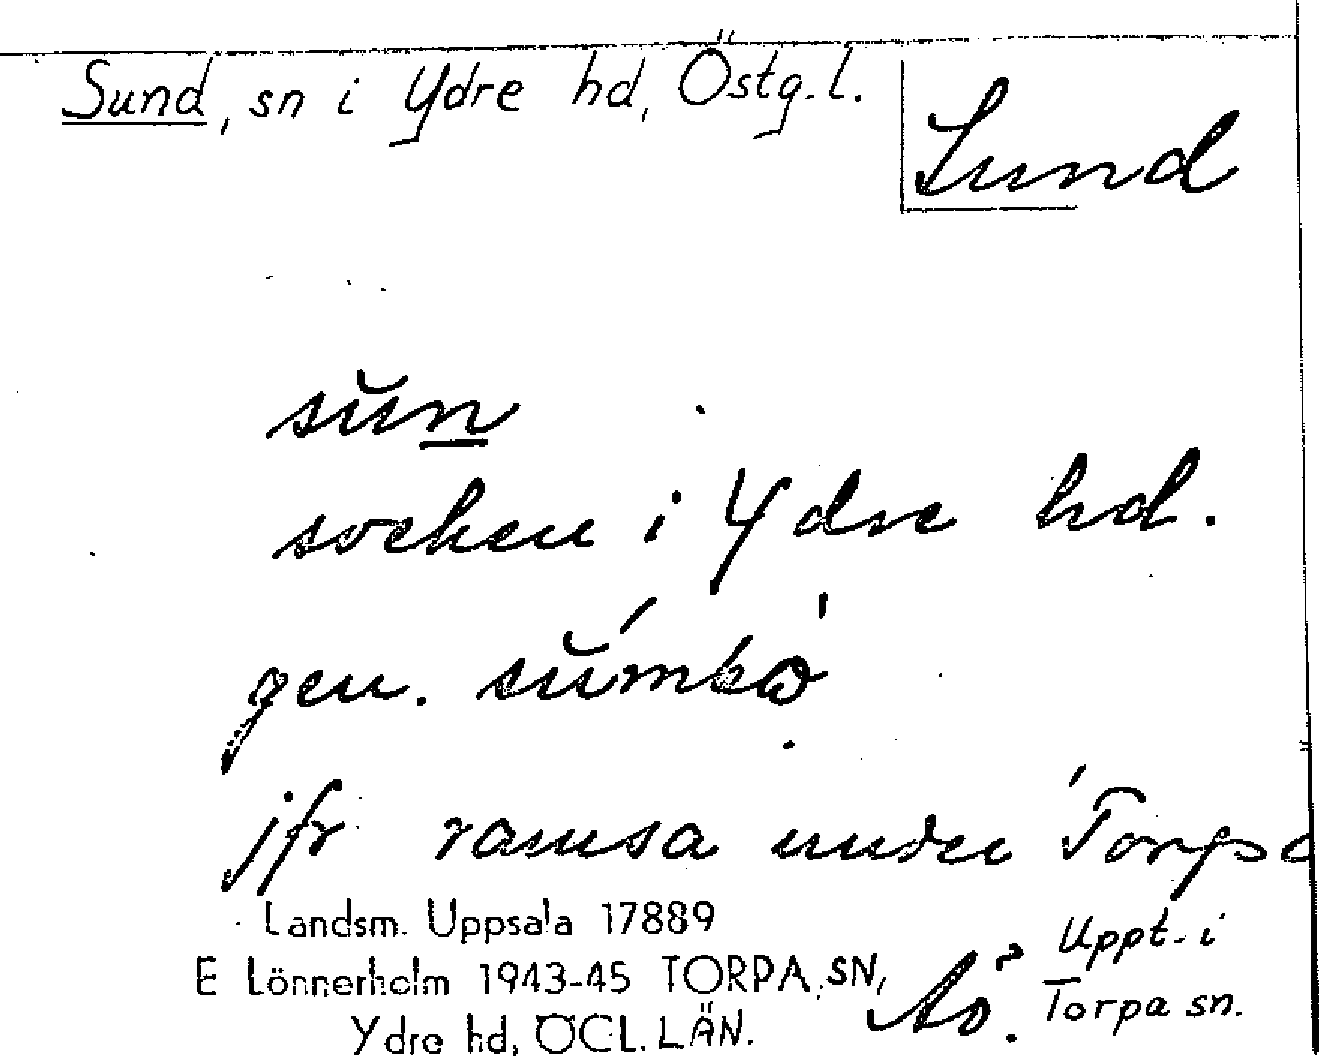 Sund, sn i Ydre hd, Östg.l.
Sund
sŭn
socken i Ydre hd.
gen.
jfr ramsa under Torpa
Landsm. Uppsala 17889
Uppt. i
E Lönnerholm 1943-45 TORPA SN,
Torpa sn.
Ydre hd, ÖGL. LÄN.